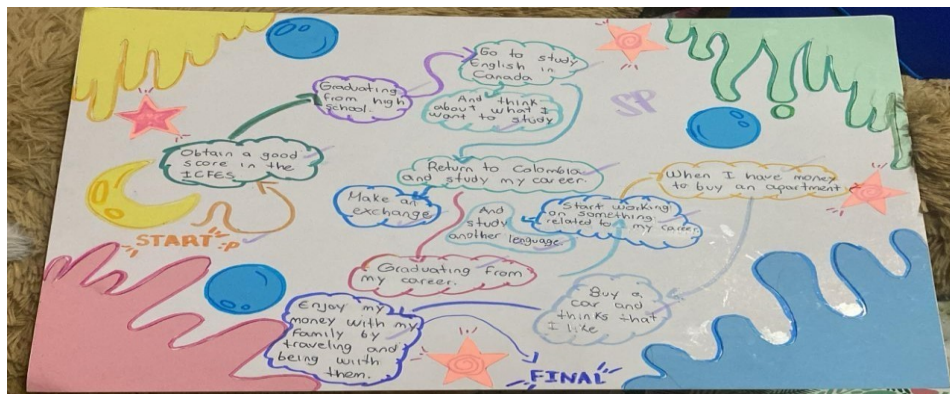 START
Obtain a good
score in the
ICFES
Graduating
from high
school.
Go to study
English in
Canada
And think
about what I
want to study
SP
Return to Colombia
and study my career.
Make an
exchange
And
study
another lenguage
Graduating from
my career.
Start working
on something
related to my career.
When I have money
to buy an apartment.
Buy a
car and
thinks that
I like
Enjoy my
money with my
family by
traveling and
being wiith
them.
FINAL